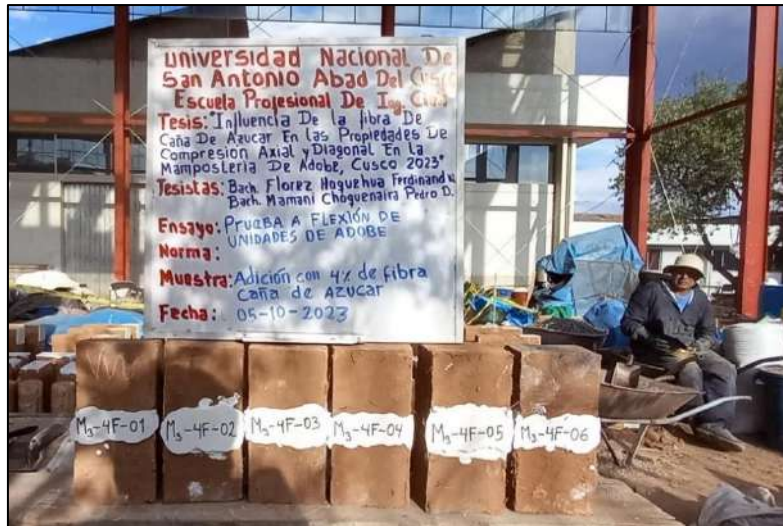 Universidad Nacional De
San Antonio Abad Del Cusco
Escuela Profesional De Ing. Civil
Tesis: "Influencia De la fibra De
Caña De Azucar En las Propiedades De
Compresion Axial y Diagonal En la
Mamposteria De Adobe, Cusco 2023"
Tesistas: Bach. Florez Hoguehua Ferdinand
Bach. Mamani Choguenaira Pedro D.
Ensayo: PRUEBA A FLEXIÓN DE
UNIDADES DE ADOBE
Norma:
Muestra: Adición con 4% de fibra
caña de AZUCAR
Fecha: 05-10-2023
M3-4F-01
M3-4F-02
M3-4F-03
M3-4F-04
M3-4F-05
M3-4F-06